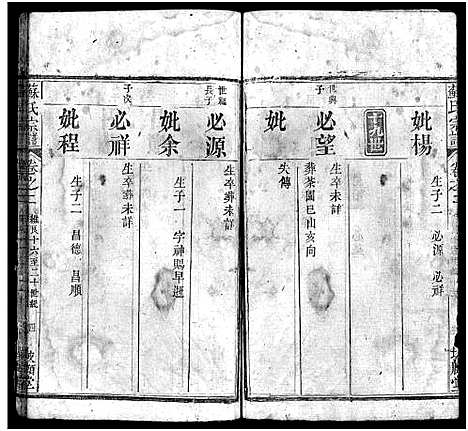 蘇氏宗譜
卷之二
妣楊
生子二 必源 必祥
十九世
世興
子
必望
生卒葬未詳
葬茶園巳山亥向
妣
失傳
世耀
長子
必源
生卒葬未詳
妣余
生子一 字神賜早逝
次子
必祥
生卒葬未詳
妣程
生子二 昌德 昌順
蘇氏宗譜
卷之二
維民十六至二十世紀
四